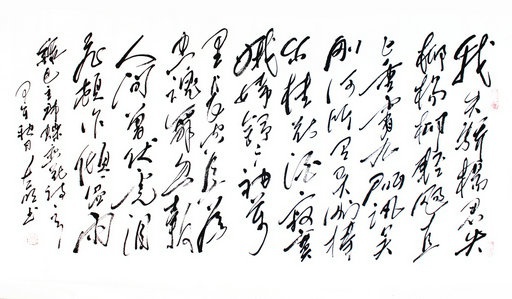 我失骄杨君失
柳杨柳轻飏直
上重霄九问讯吴
刚何所有吴刚捧
出桂花酒寂寞
嫦娥舒广袖万
里长空且为
忠魂舞忽报
人间曾伏虎泪
飞顿作倾盆雨
毛主席蝶恋花
秋月 书